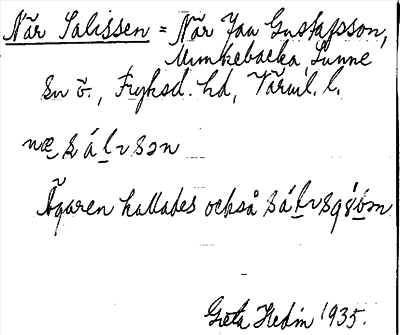 När Salissen = När Jan Gustafsson,
Munkebacka, Sunne
sn ö., Fryksd. hd, Värml. l.
næ sálısən
Ägaren kallades också
Greta Hedin 1935.